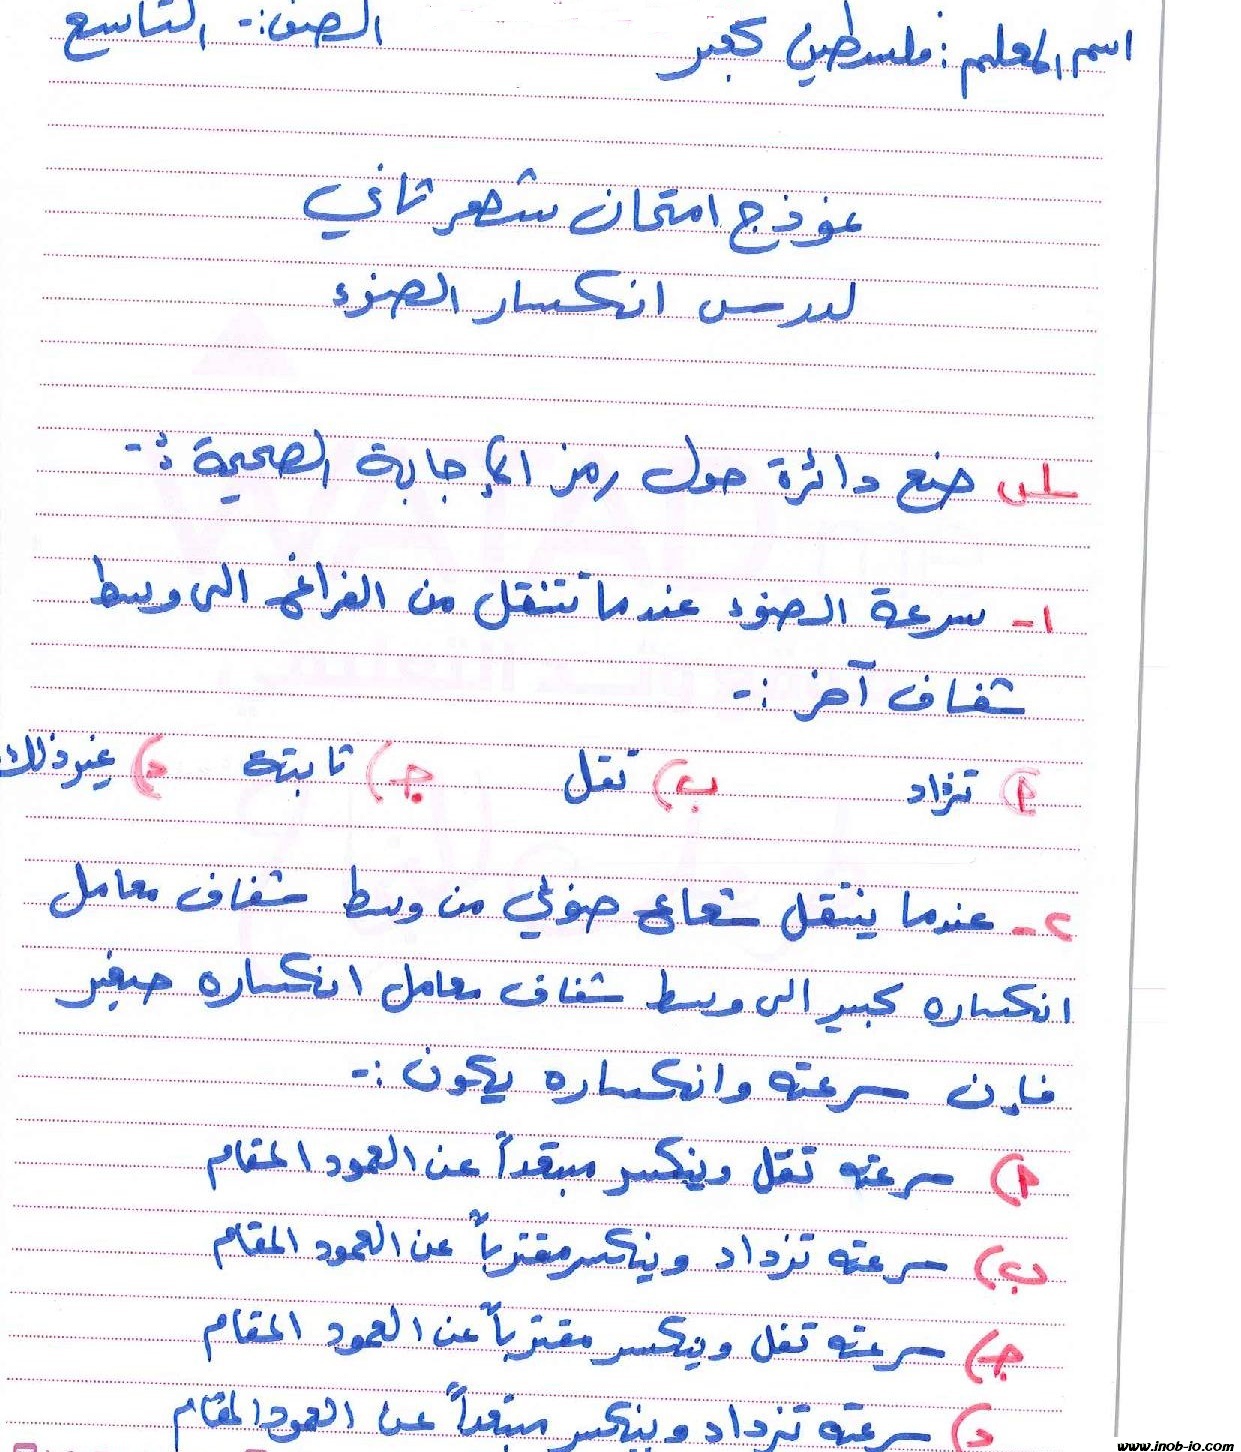 اسم المعلم: فلسطين كجبر الصف:- التاسع
نموذج امتحان شهر ثاني
لدرس انكسار الضوء
س1 ضع دائرة حول رمز الإجابة الصحيحة :-
1- سرعة الضوء عندما تنتقل من الفراغ الى وسط
شفاف آخر :-
أ) تزداد ب) تقل ج) ثابتة د) غير ذلك
2- عندما ينتقل شعاع ضوئي من وسط شفاف معامل
انكساره كبير الى وسط شفاف معامل انكساره صغير
فإن سرعته وانكساره يكون :-
أ) سرعته تقل وينكسر مبتعداً عن العمود المقام
ب) سرعته تزداد وينكسر مقترباً عن العمود المقام
ج) سرعته تقل وينكسر مقترباً عن العمود المقام
د) سرعته تزداد وينكسر مبتعداً عن العمود المقام
www.inob-io.com